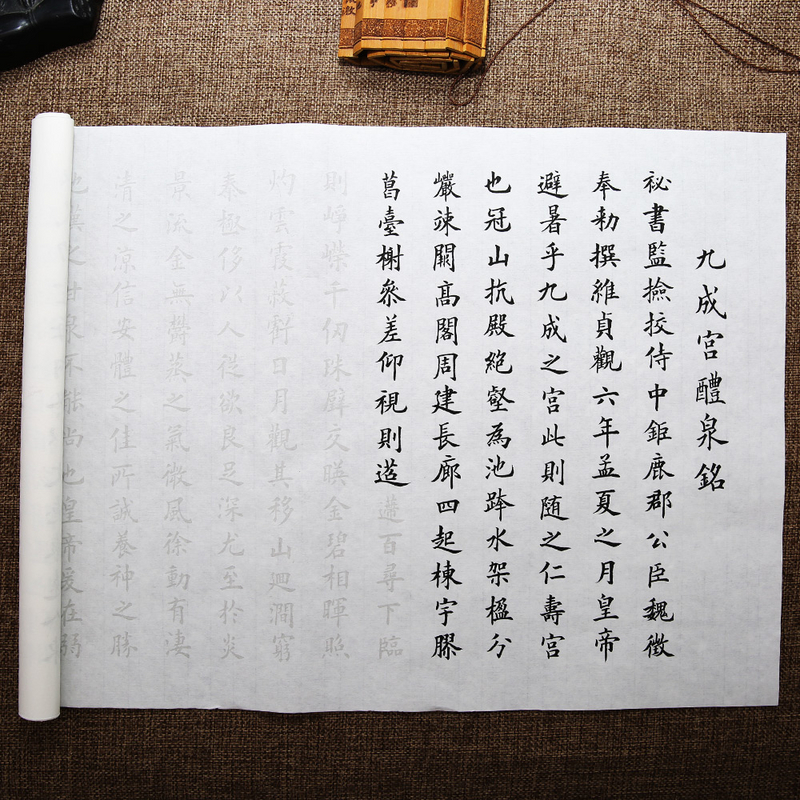 九成宮醴泉銘
祕書監撿挍侍中鉅鹿郡公臣魏徵
奉勑撰維貞觀六年孟夏之月皇帝
避暑乎九成之宮此則随之仁壽宮
也冠山抗殿絕壑為池跨水架楹分
巗竦闕髙閣周建長廊四起棟宇膠
葛臺榭叅差仰視則迢遰百尋下臨
則崢嶸千仞珠璧交暎金碧相暉照
灼雲霞蔽虧日月觀其移山迴澗窮
泰極侈以人從欲良足深尤至於炎
景流金無欝蒸之氣微風徐動有淒
清之凉信安體之佳所誠養神之勝
地漢之甘泉不能尚也皇帝爰在弱